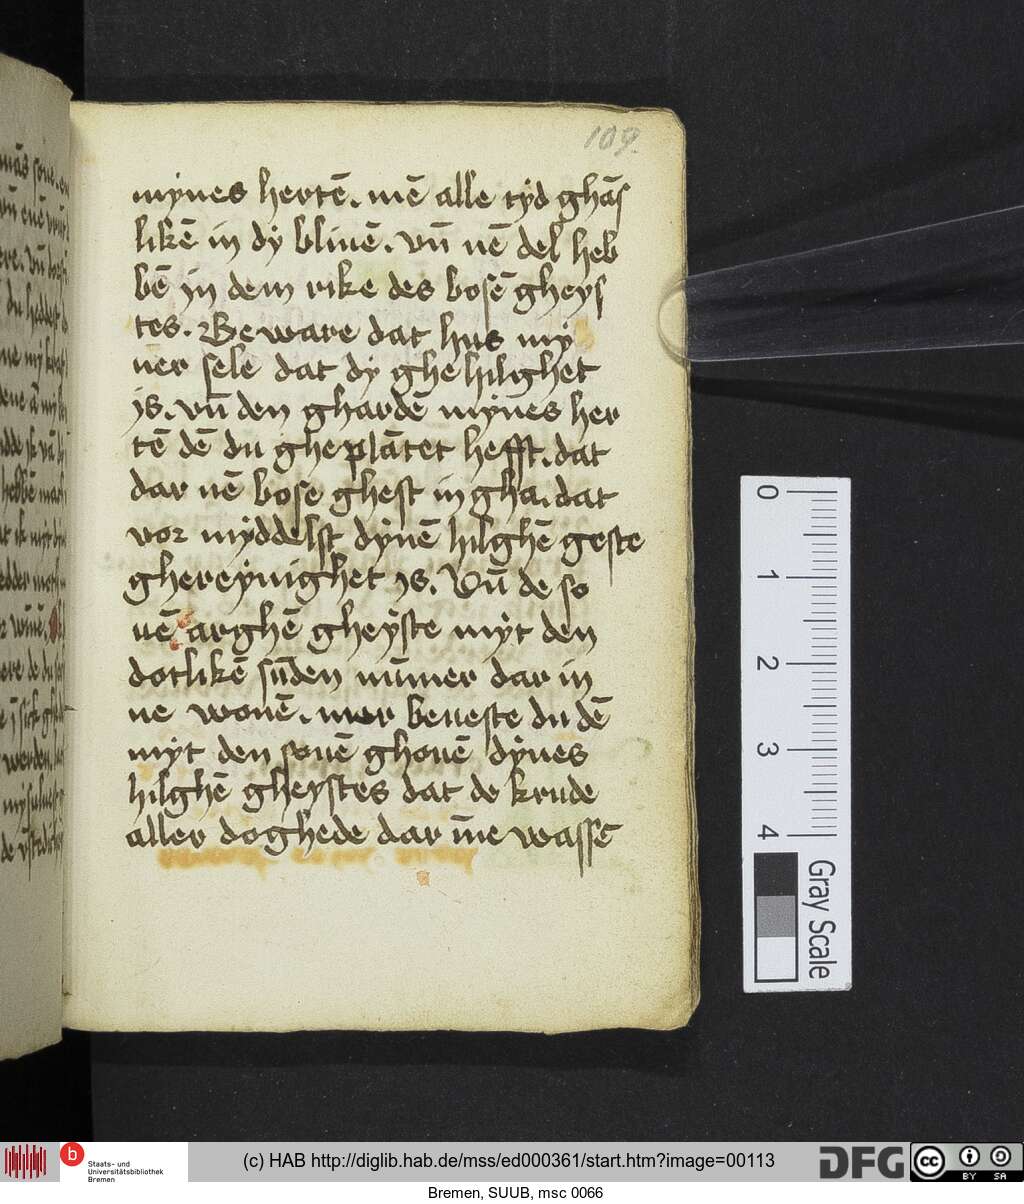 109.
mynes hertē. mē alle tyd ghās
likē in dy bliuē. vn̄ nē del heb
bē yn dem rike des bosē gheys
tes. Beware dat hus my
ner sele dat dy ghehilghet
ys. vn̄ den ghardē mynes her
tē dē du gheplātet hefft. dat
dar nē bose ghest in gha. dat
vor myddelst dynē hilghē geste
ghereynighet ys. Vn̄ de so
uē arghē gheyste myt den
dotlikē sūden nūmer dar in
ne wonē. mer beueste du dē
myt den souē ghouē dynes
hilghē gheystes dat de krude
aller doghede dar īne wasse
0 1 2 3 4
Gray Scale
b Staats- und
Universitätsbibliothek
Bremen
(c) HAB http://diglib.hab.de/mss/ed000361/start.htm?image=00113
DFG
cc BY SA
Bremen, SUUB, msc 0066